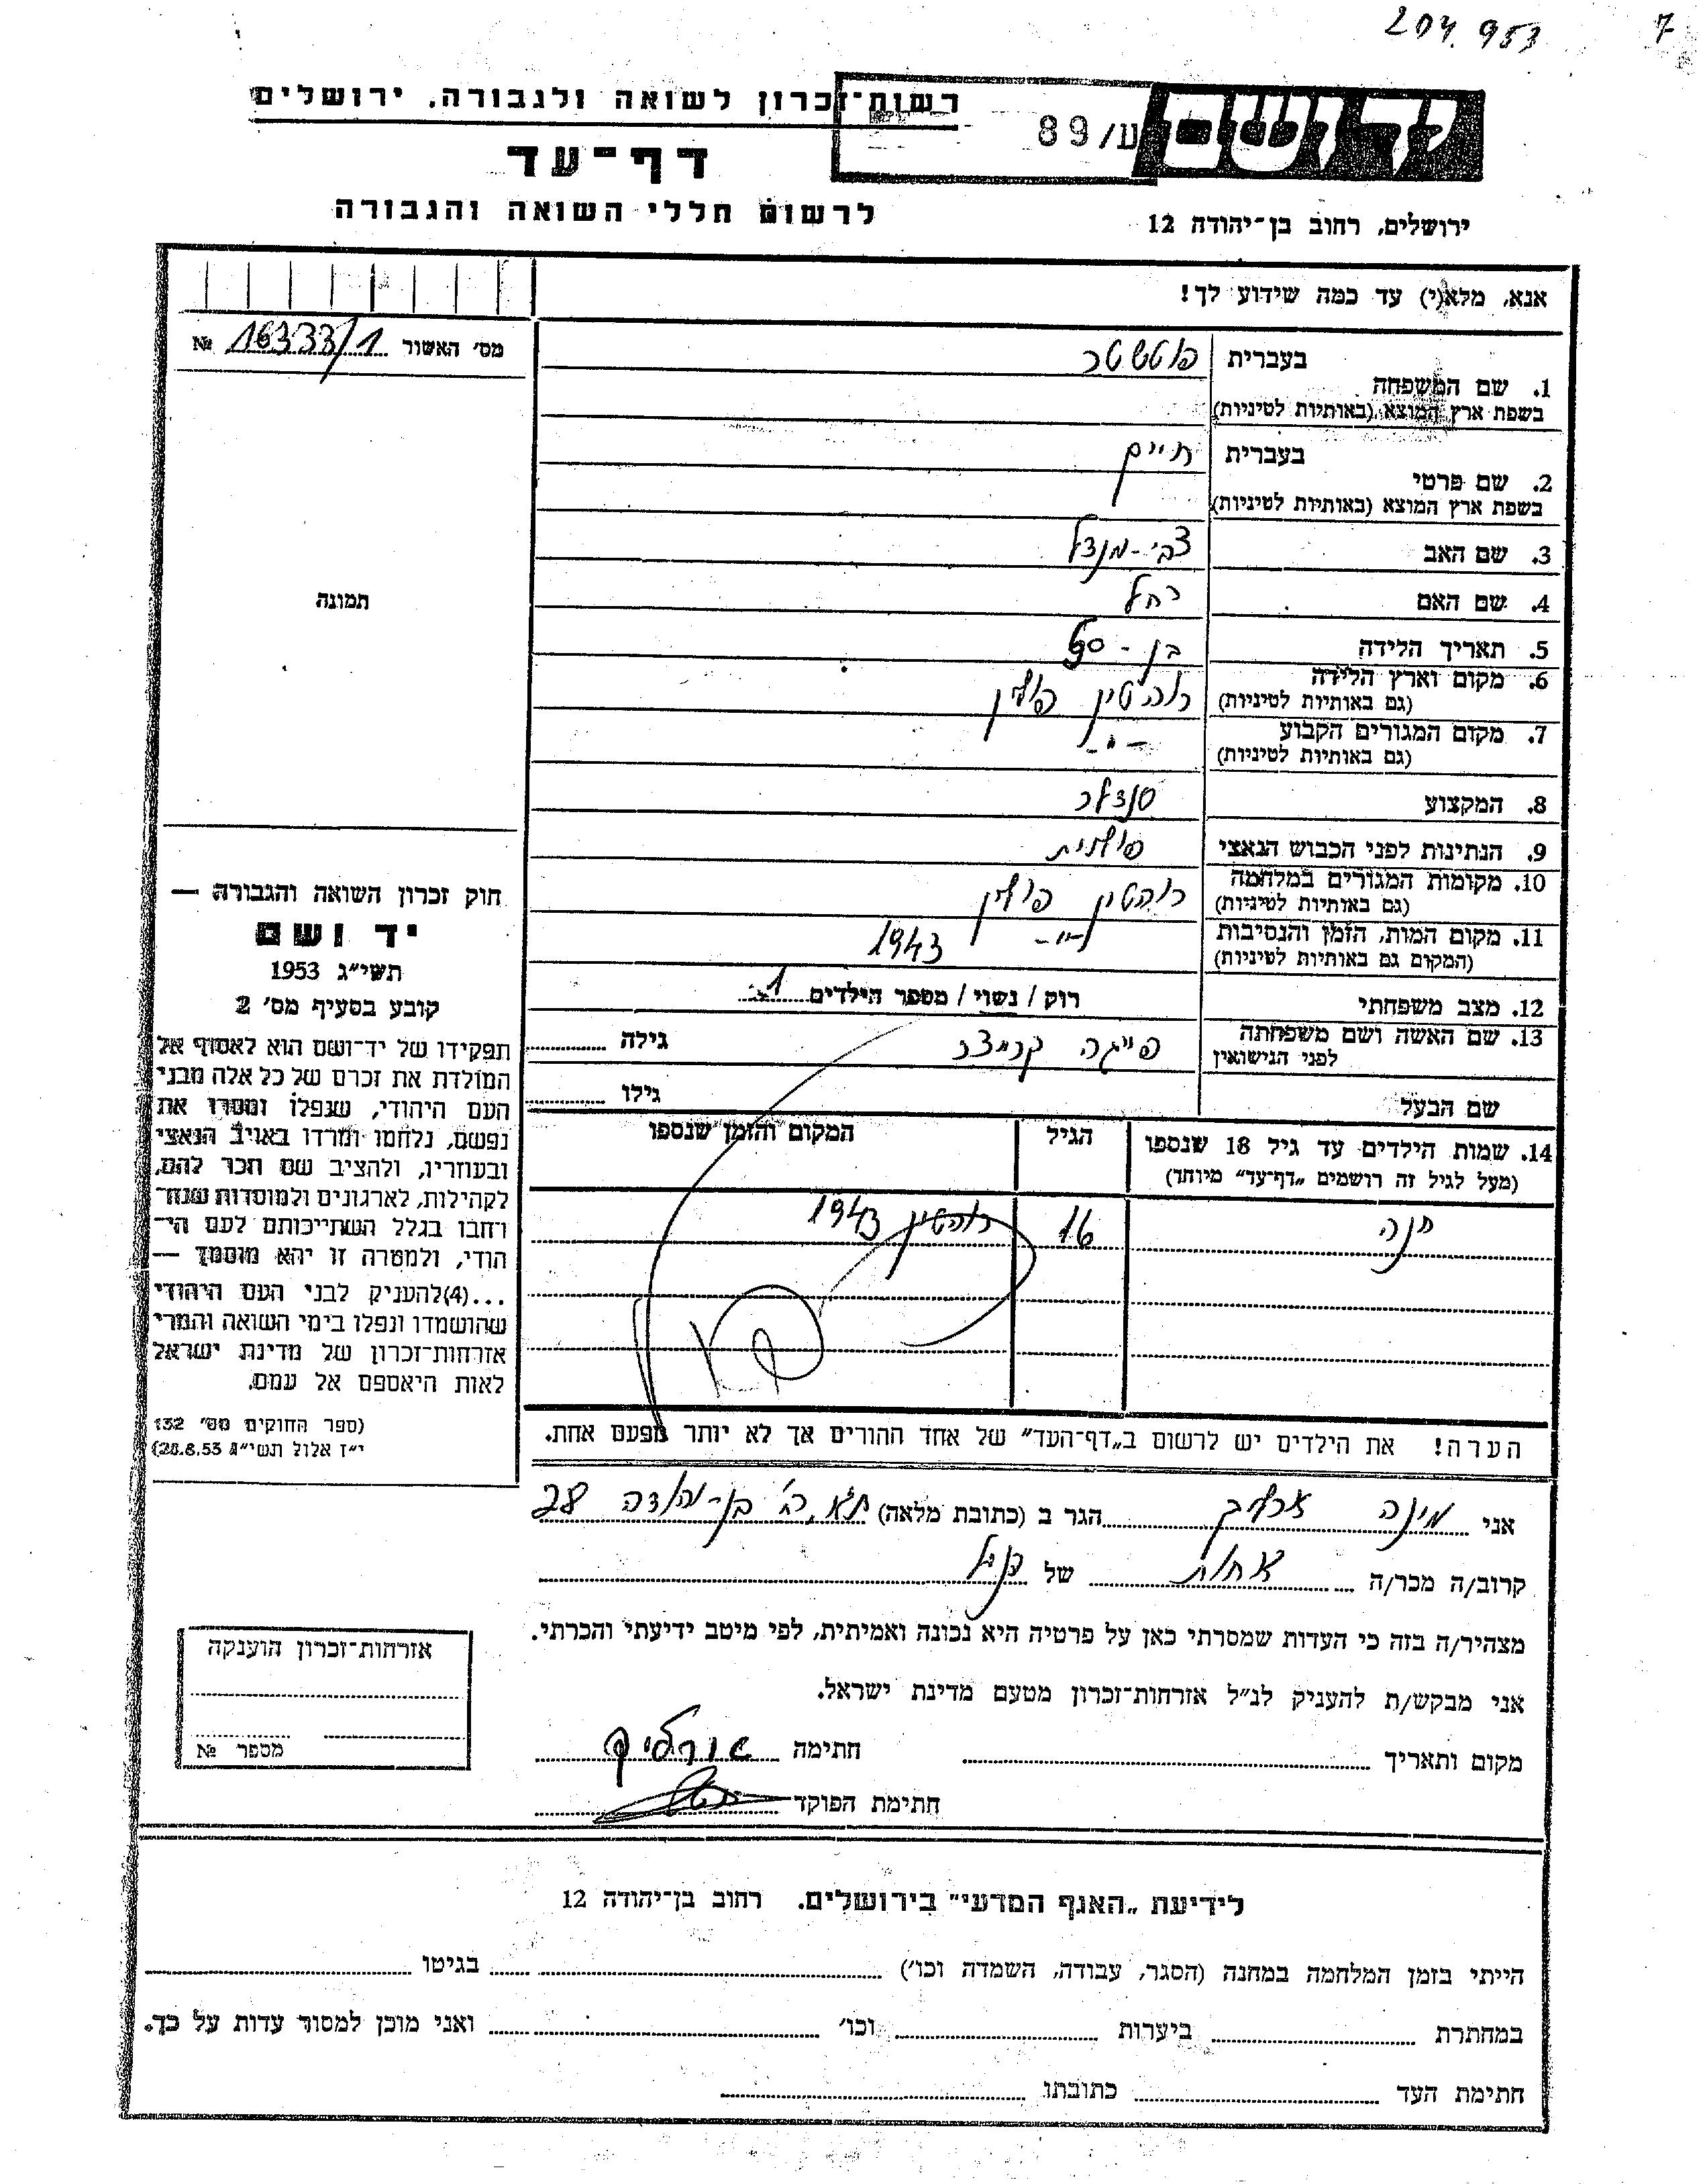 204.953 7
יד ושם
ע/89
רשות־זכרון לשואה ולגבורה, ירושלים
דף־עד
לרשום חללי השואה והגבורה
ירושלים, רחוב בן־יהודה 12
אנא, מלא(י) עד כמה שידוע לך!
מס׳ האשור 16333/1 №
תמונה
חוק זכרון השואה והגבורה —
יד ושם
תשי״ג 1953
קובע בסעיף מס׳ 2
תפקידו של יד־ושם הוא לאסוף אל
המולדת את זכרם של כל אלה מבני
העם היהודי, שנפלו ומסרו את
נפשם, נלחמו ומרדו באויב הנאצי
ובעוזריו, ולהציב שם וזכר להם,
לקהילות, לארגונים ולמוסדות שנח־
רחבו בגלל השתייכותם לעם הי־
הודי, ולמטרה זו יהא מוסמך —
...(4)להעניק לבני העם היהודי
שהושמדו ונפלו בימי השואה והמרי
אזרחות־זכרון של מדינת ישראל
לאות היאספם אל עמם.
(ספר החוקים מס׳ 132
י״ז אלול תשי״ג 28.8.53)
1. שם המשפחה בעברית פוטשטר
בשפת ארץ המוצא (באותיות לטיניות)
2. שם פרטי בעברית חיים
בשפת ארץ המוצא (באותיות לטיניות)
3. שם האב צבי-מנדל
4. שם האם רחל
5. תאריך הלידה בן -
6. מקום וארץ הלידה רוהטין פולין
(גם באותיות לטיניות)
7. מקום המגורים הקבוע -"-
(גם באותיות לטיניות)
8. המקצוע סנדלר
9. הנתינות לפני הכבוש הנאצי פולנית
10. מקומות המגורים במלחמה רוהטין פולין
(גם באותיות לטיניות)
11. מקום המות, הזמן והנסיבות -"- 1943
(המקום גם באותיות לטיניות)
12. מצב משפחתי רוק / נשוי / מספר הילדים 1
13. שם האשה ושם משפחתה פייגה קרמצר גילה
לפני הנישואין
שם הבעל גילו
14. שמות הילדים עד גיל 18 שנספו הגיל המקום והזמן שנספו
(מעל לגיל זה רושמים „דף־עד” מיוחד)
חנה 16 רוהטין 1943
הערה! את הילדים יש לרשום ב„דף־העד” של אחד ההורים אך לא יותר מפעם אחת.
אני מינה הגר ב (כתובת מלאה) ת"א, רח' בן-יהודה 28
קרוב/ה מכר/ה אחות של הנ"ל
מצהיר/ה בזה כי העדות שמסרתי כאן על פרטיה היא נכונה ואמיתית, לפי מיטב ידיעתי והכרתי.
אני מבקש/ת להעניק לנ״ל אזרחות־זכרון מטעם מדינת ישראל.
מקום ותאריך חתימה
חתימת הפוקד
אזרחות־זכרון הוענקה
מספר №
לידיעת „האגף המדעי” בירושלים. רחוב בן־יהודה 12
הייתי בזמן המלחמה במחנה (הסגר, עבודה, השמדה וכו׳) בגיטו
במחתרת ביערות וכו׳ ואני מוכן למסור עדות על כך.
חתימת העד כתובתו